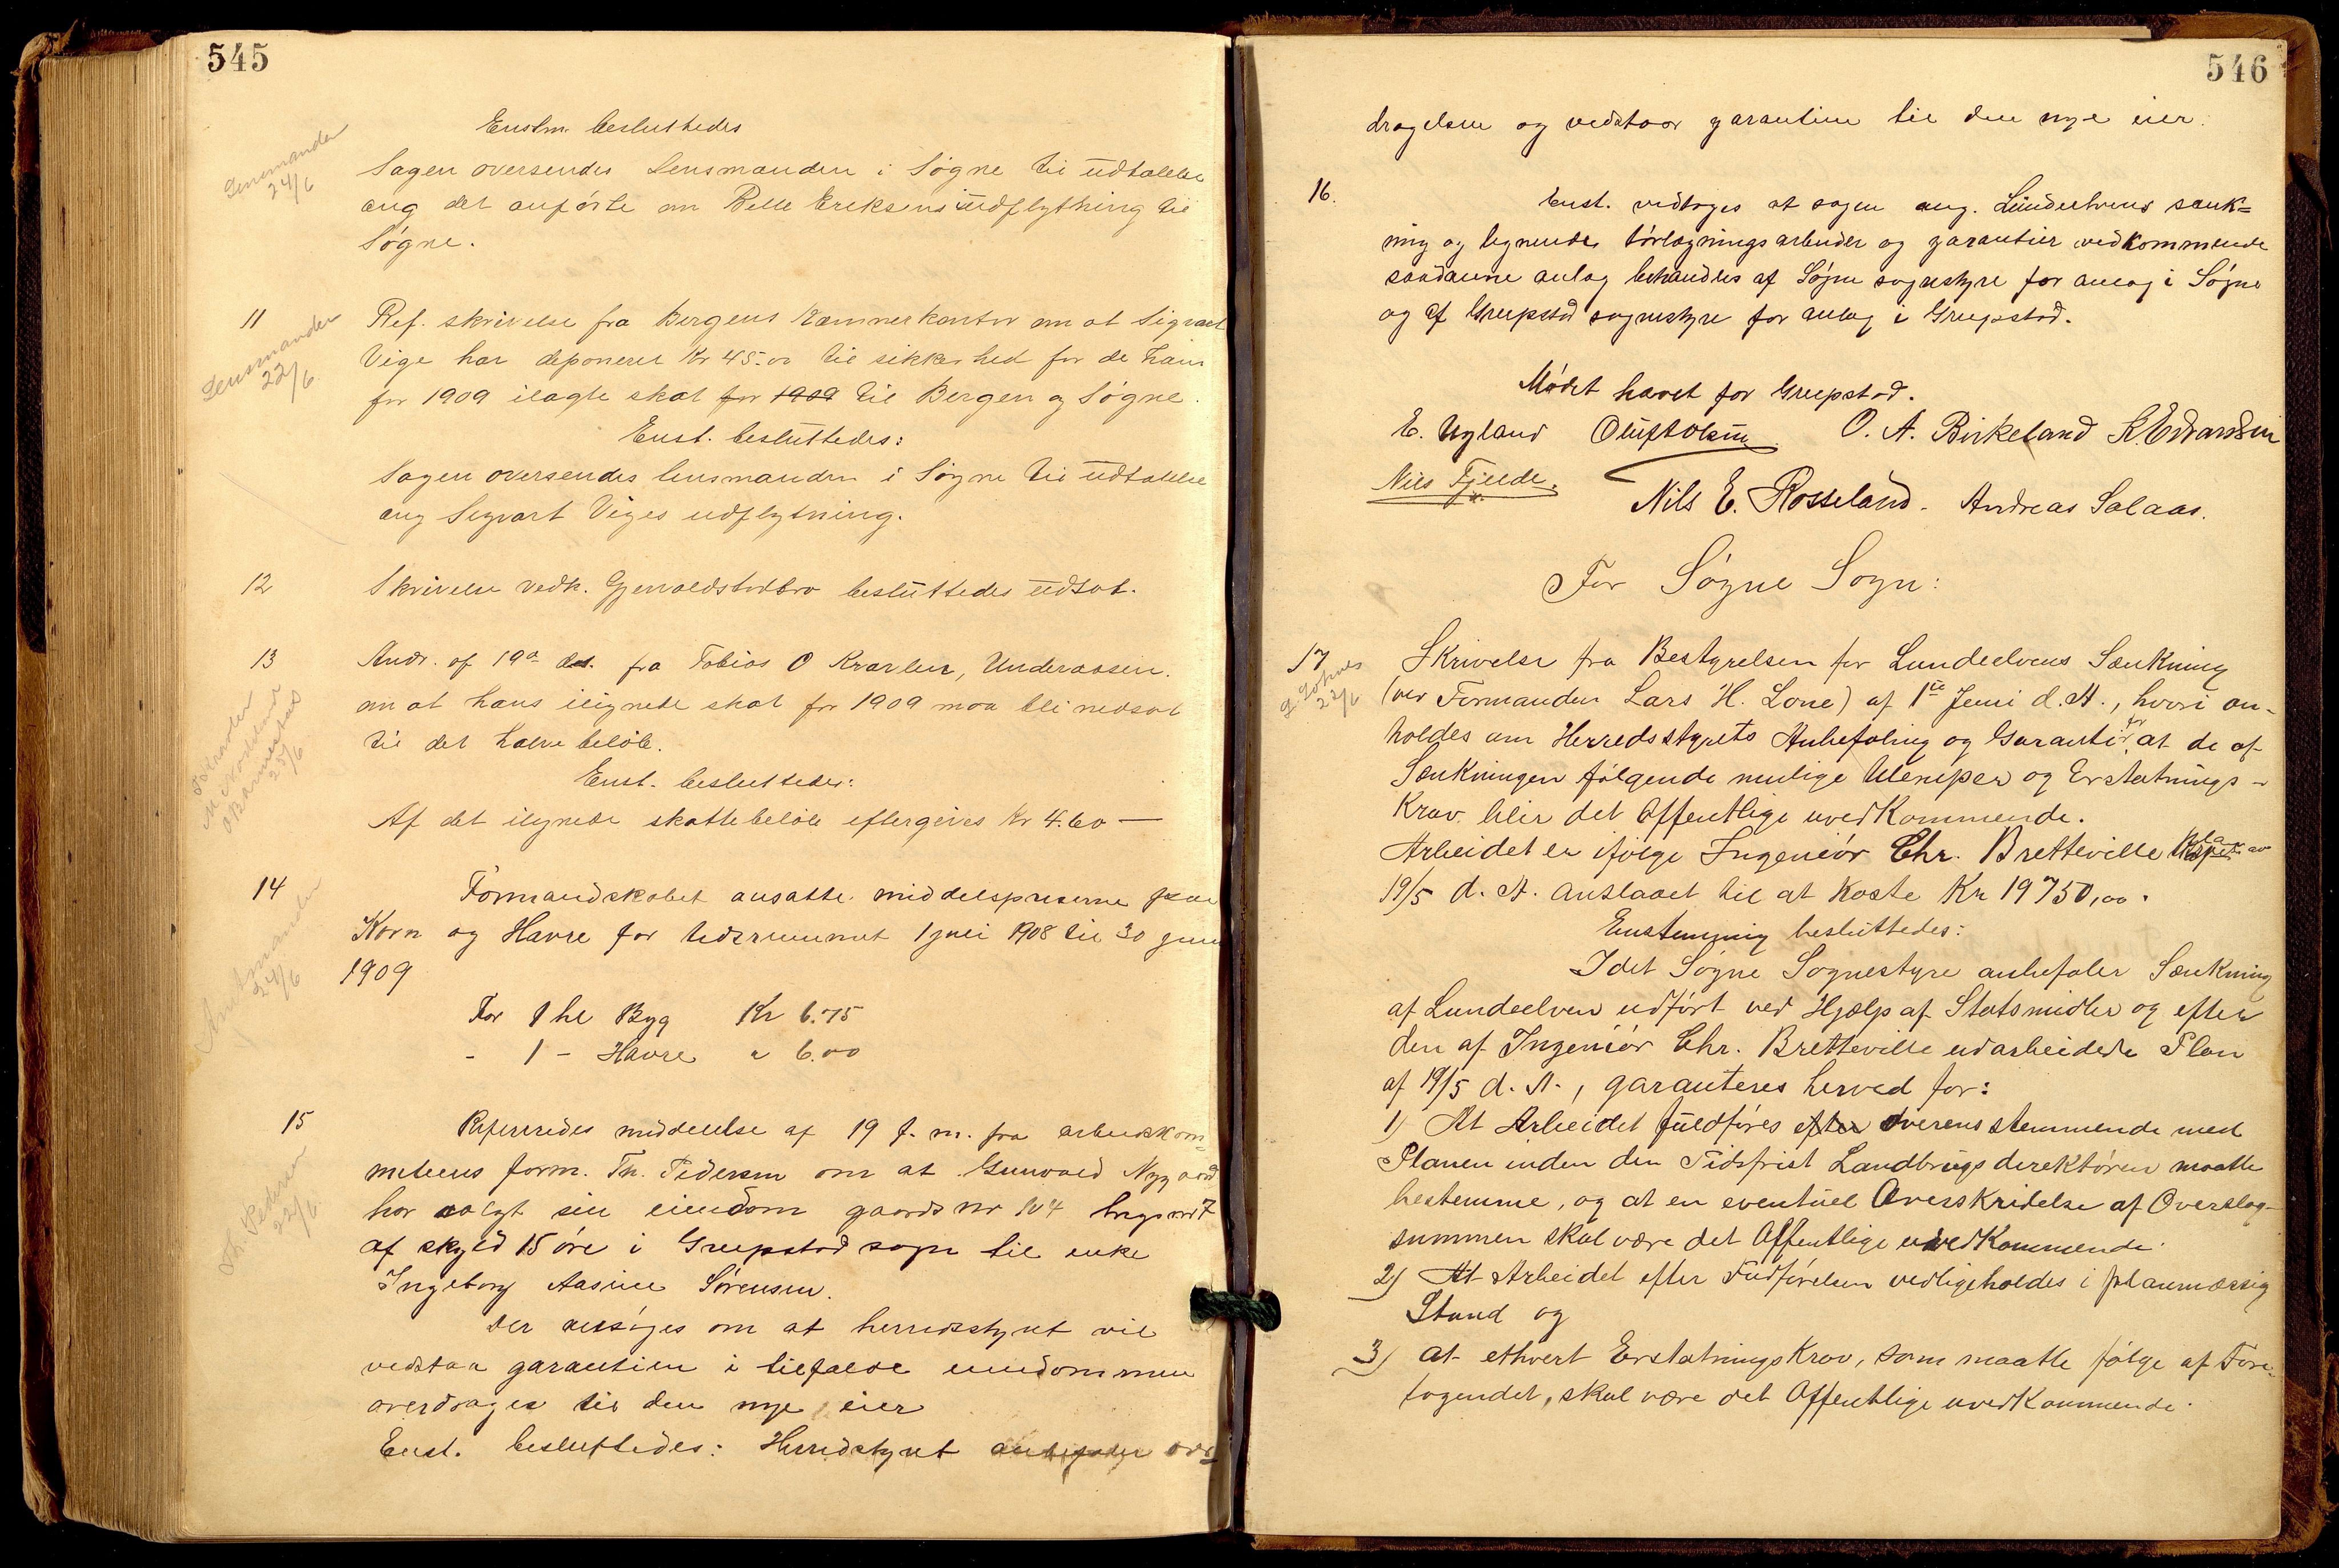 545
Enstm. besluttedes
Lensmanden
24/6
Sagen oversendes Lensmanden i Søgne til udtalelse
ang det anførte om Pelle Eriksens udflytning til
Søgne.
11
Lensmanden
22/6
Ref. skrivelse fra Bergens Kæmnerkontor om at Sigvart
Vige har deponeret Kr 45.00 til sikkerhed for de ham
for 1909 ilagte skat for 1909 til Bergen og Søgne.
Enst. besluttedes:
Sagen oversendes lensmanden i Søgne til udtalelse
ang Sigvart Viges udflytning.
12
Skrivelse vedk. Gjervoldstadbro besluttedes udsat.
13
Andr. af 19de ds. fra Tobias O Kravlen, Underaasen.
om at hans ilignede skat for 1909 maa bli nedsat
til det halve beløb.
T Kravlen
25/6
Enst. besluttedes:
Af det ilignede skattebeløb eftergives Kr 4.60 —
14
Amtmanden
24/6
Formandskabet ansatte middelspriserne paa
Korn og Havre for tidsrummet 1 juli 1908 til 30 juni
1909
For 1 hl Byg Kr 6.75
- 1 - Havre " 6.00
15
Th. Pedersen
22/6
Refereredes meddelelse af 19 f. m. fra arbeiderkom-
miteens form. Th. Pedersen om at Gunvald Nygaard
har solgt sin eiendom gaards nr 104 brugs nr 7
af skyld 15 øre i Greipstad sogn til enke
Ingeborg Aasine Sørensen.
Der ansøges om at herredsstyret vil
vedstaa garantien i tilfælde eiendommen
overdrages til den nye eier
Enst. besluttedes: Herredstyret anbefaler over-
546
dragelsen og vedstaar garantien til den nye eier.
16.
Enst. vedtoges at sagen ang. Lundeelvens sænk=
ning og lignende tørlægningsarbeider og garantier vedkommende
saadanne anlæg behandles af Søgne sognestyre for anlæg i Søgne
og af Greipstad sognestyre for anlæg i Greipstad.
Mødet hævet for Greipstad.
E. Ugland Oluf Olsen O. A. Birkeland K. Edvardsen
Nils Fjelde. Nils E. Rosseland. Andreas Salaas.
For Søgne Sogn:
17
22/6
Skrivelse fra Bestyrelsen for Lundeelvens Sænkning
(ved Formanden Lars H. Lone) af 1ste Juni d. A., hvori an-
holdes om Herredsstyrets Anbefaling og Garanti for at de af
Sænkningen følgende mulige Ulemper og Erstatnings-
Krav blir det Offentlige uvedkommende.
Arbeidet er ifølge Ingeniør Chr. Bretteville Plan av
19/5 d. A. anslaaet til at koste Kr 19750,00.
Enstemmig besluttedes:
Idet Søgne Sognestyre anbefaler Sænkning
af Lundeelven udført ved Hjælp af Statsmidler og efter
den af Ingeniør Chr. Bretteville udarbeidede Plan
af 19/5 d. A., garanteres herved for:
1) At Arbeidet fuldføres efter overensstemmende med
Planen inden den Tidsfrist Landbrugsdirektøren maatte
bestemme, og at en eventuel Overskridelse af Overslag-
summen skal være det Offentlige uvedkommende.
2) At Arbeidet efter Fuldførelsen vedligeholdes i planmæssig
Stand og
3) at ethvert Erstatningskrav, som maatte følge af Fore-
tagendet, skal være det Offentlige uvedkommende.